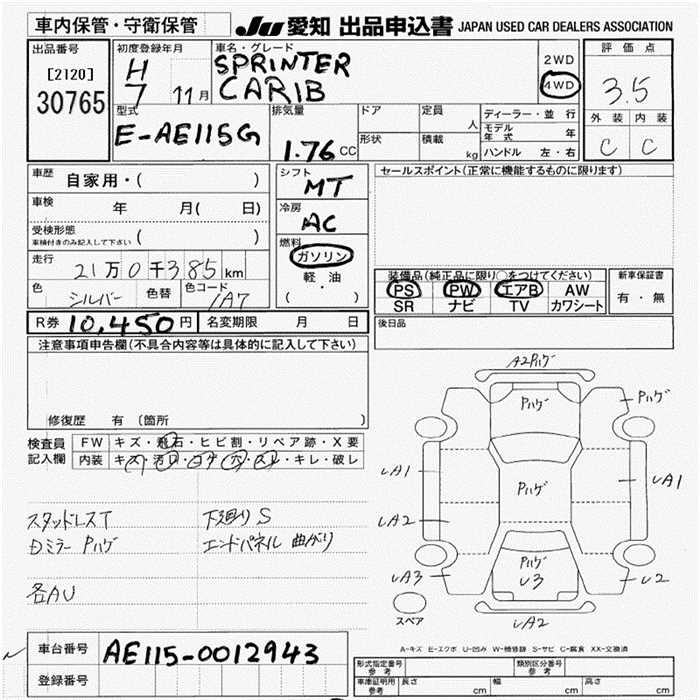 車内保管・守衛保管 JU 愛知 出品申込書 JAPAN USED CAR DEALERS ASSOCIATION
出品番号 初度登録年月 車名・グレード 評価点
[2120] H SPRINTER 2WD
30765 7 11月 CARIB 4WD 3.5
型式 排気量 ドア 定員 人 ディーラー・並行 外装 内装
E-AE115G 1.76 CC 形状 積載 kg モデル年式 年 C C
ハンドル 左・右
車歴 自家用・( ) シフト MT セールスポイント(正常に機能するものに限ります)
車検 年 月( 日) 冷房 AC
受検形態 ( )
車検付きのみ記入して下さい
燃料 ガソリン
走行 21万0千385km 軽・油 装備品(純正品に限り○をつけてください) 新車保証書
色 シルバー 色替 色コード 1A7 (・) PS PW エアB AW 有・無
SR ナビ TV カワシート
R券 10,450円 名変期限 月 日 後日品
注意事項申告欄(不具合内容等は具体的に記入して下さい)
修復歴 有 (箇所 )
検査員 FW キズ・飛石・ヒビ割・リペア跡・X要
記入欄 内装 キズ・汚れ・コゲ・穴・スレ・キレ・破レ
A2Pハゲ
Pハゲ Pハゲ
UA1 Pハゲ UA1
UA2
Pハゲ
UA3 U3 U2
UA2
スペア
スタッドレスT 下廻りS
Dミラー Pハゲ エンドパネル 曲がり
各AU
車台番号 AE115-0012943
登録番号
A-キズ E-エクボ U-凹み W-補修跡 S-サビ C-腐食 XX-交換済
形式指定番号 参考 類別区分番号 参考
車庫証明用 参考 長さ cm 幅 cm 高さ cm